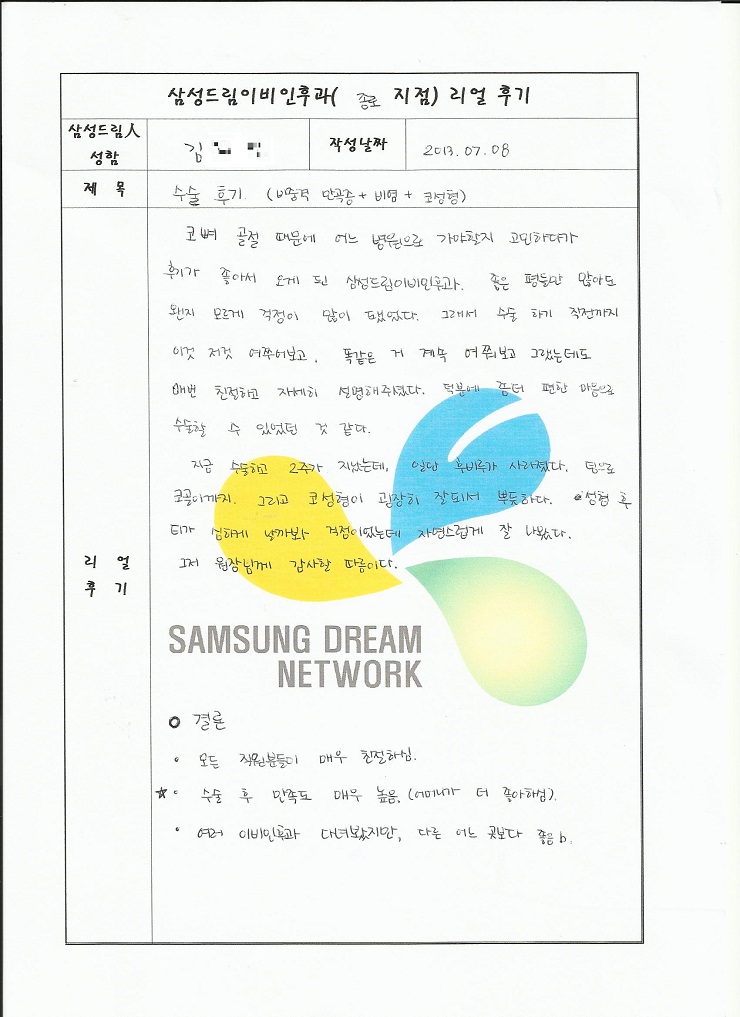 삼성드림이비인후과( 종로 지점) 리얼 후기
삼성드림人
성함
김
작성날짜
2013.07.08
제 목
수술 후기. (비중격 만곡증 + 비염 + 코성형)
코뼈 골절 때문에 어느 병원으로 가야할지 고민하다가
후기가 좋아서 오게 된 삼성드림이비인후과. 좋은 평들만 많아도
왠지 모르게 걱정이 많이 됐었다. 그래서 수술 하기 직전까지
이것 저것 여쭈어보고, 똑같은 거 계속 여쭤보고 그랬는데도
매번 친절하고 자세히 설명해주셨다. 덕분에 좀더 편한 마음으로
수술할 수 있었던 것 같다.
지금 수술하고 2주가 지났는데, 일단 후비루가 사라졌다. 덤으로
코골이까지. 그리고 코성형이 굉장히 잘되서 뿌듯하다. 성형 후
티가 심하게 날까봐 걱정이었는데 자연스럽게 잘 나왔다.
그저 원장님께 감사할 따름이다.
리 얼
후 기
SAMSUNG DREAM
NETWORK
o 결론
• 모든 직원분들이 매우 친절하심.
☆• 수술 후 만족도 매우 높음. (어머니가 더 좋아하심).
• 여러 이비인후과 다녀봤지만, 다른 어느 곳보다 좋음b.